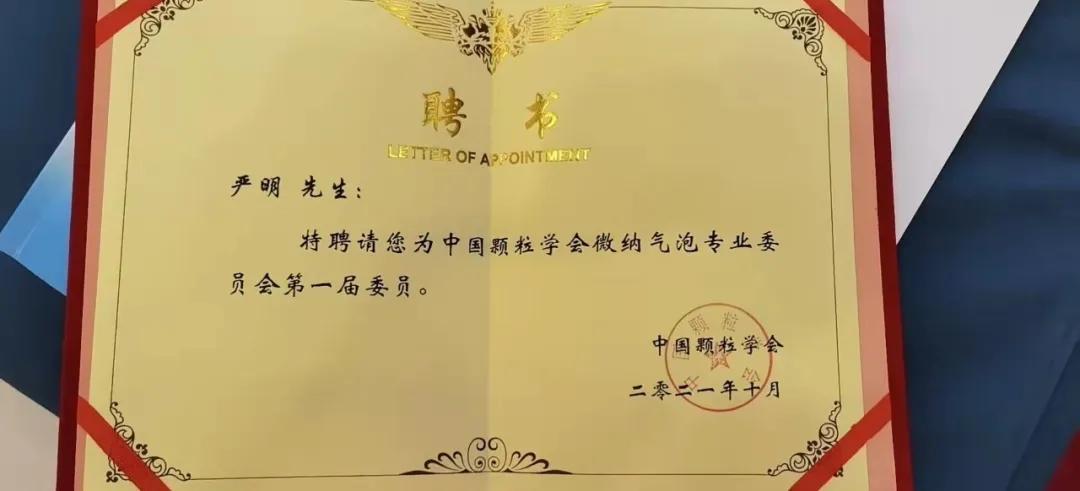 聘书
LETTER OF APPOINTMENT
严明 先生：
特聘请您为中国颗粒学会微纳气泡专业委
员会第一届委员。
中国颗粒学会
中国颗粒学会
二零二一年十月